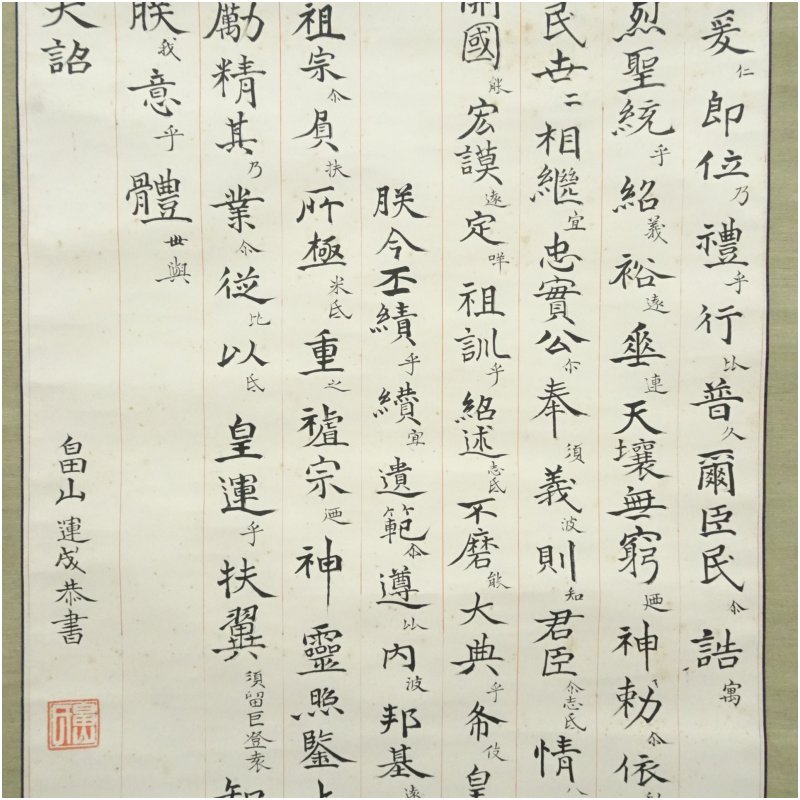 爰仁即位乃禮乎行比普久爾臣民尒誥寓
烈聖統乎紹義裕遠埀連天壤無窮廼神勅尒依
民世二相繼宜忠實公尒奉須義波則知君臣尒志氐情八
開國能宏謨遠定咩祖訓乎紹述志氐不磨能大典乎布伎皇
朕今丕績乎纉宜遺範尒遵比内波邦基遠
祖宗尒員扶所極米氐重之宗廼神靈照鑒上
勵精其乃業尒從比以氐皇運乎扶翼須留巨登袁知
朕我意乎體世與
詔
畠山運成恭書